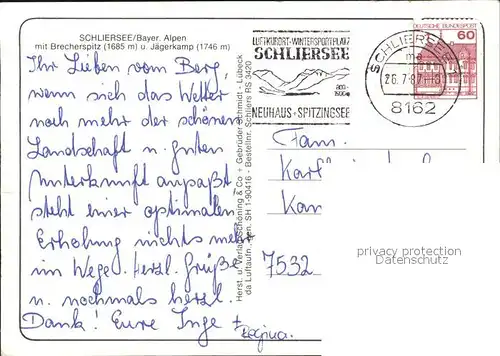 SCHLIERSEE/Bayer. Alpen
mit Brecherspitz (1685 m) u. Jägerkamp (1746 m)
Ihr Lieben vom Berg,
wenn sich das Wetter
noch mehr der schönen
Landschaft u. guten
Unterkunft anpaßt,
steht einer optimalen
Erholung nichts mehr
im Wege. Herzl. Grüße
u. nochmals herzl.
Dank! Eure Inge +
Regina.
Herst. u. Verlag Schöning & Co + Gebrüder Schmidt - Lübeck
da Luftaufn. SH 1-90416 - Bestellnr. Schliers RS 3420
LUFTKURORT-WINTERSPORTPLATZ
SCHLIERSEE
800-
1900 m
NEUHAUS · SPITZINGSEE
SCHLIERSEE
ma
26.7.87-18
8162
DEUTSCHE BUNDESPOST
60
Fam.
Karl
Kar
7532
privacy protection
Datenschutz